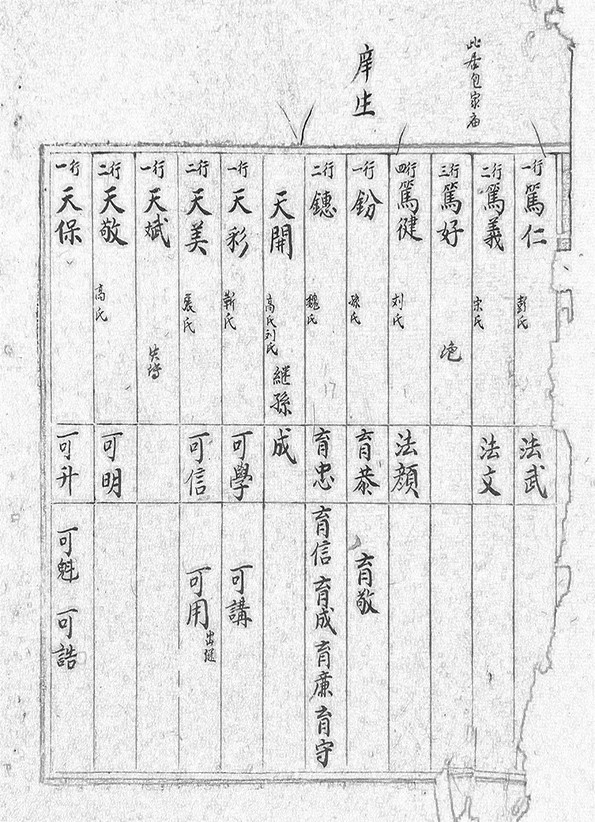 此居包家庙
庠生
一行 篤仁 彭氏 法武
二行 篤義 宋氏 法文
三行 篤好
四行 篤健 刘氏 法顔
一行 鈖 孫氏 育恭 育敬
二行 鏸 魏氏 育忠 育信 育成 育廉 育守
天開 高氏刘氏 継孫 成
一行 天彩 靳氏 可學 可講
二行 天美 展氏 可信 可用 出継
一行 天斌 失塆
二行 天敬 高氏 可明
一行 天保 可升 可魁 可誥